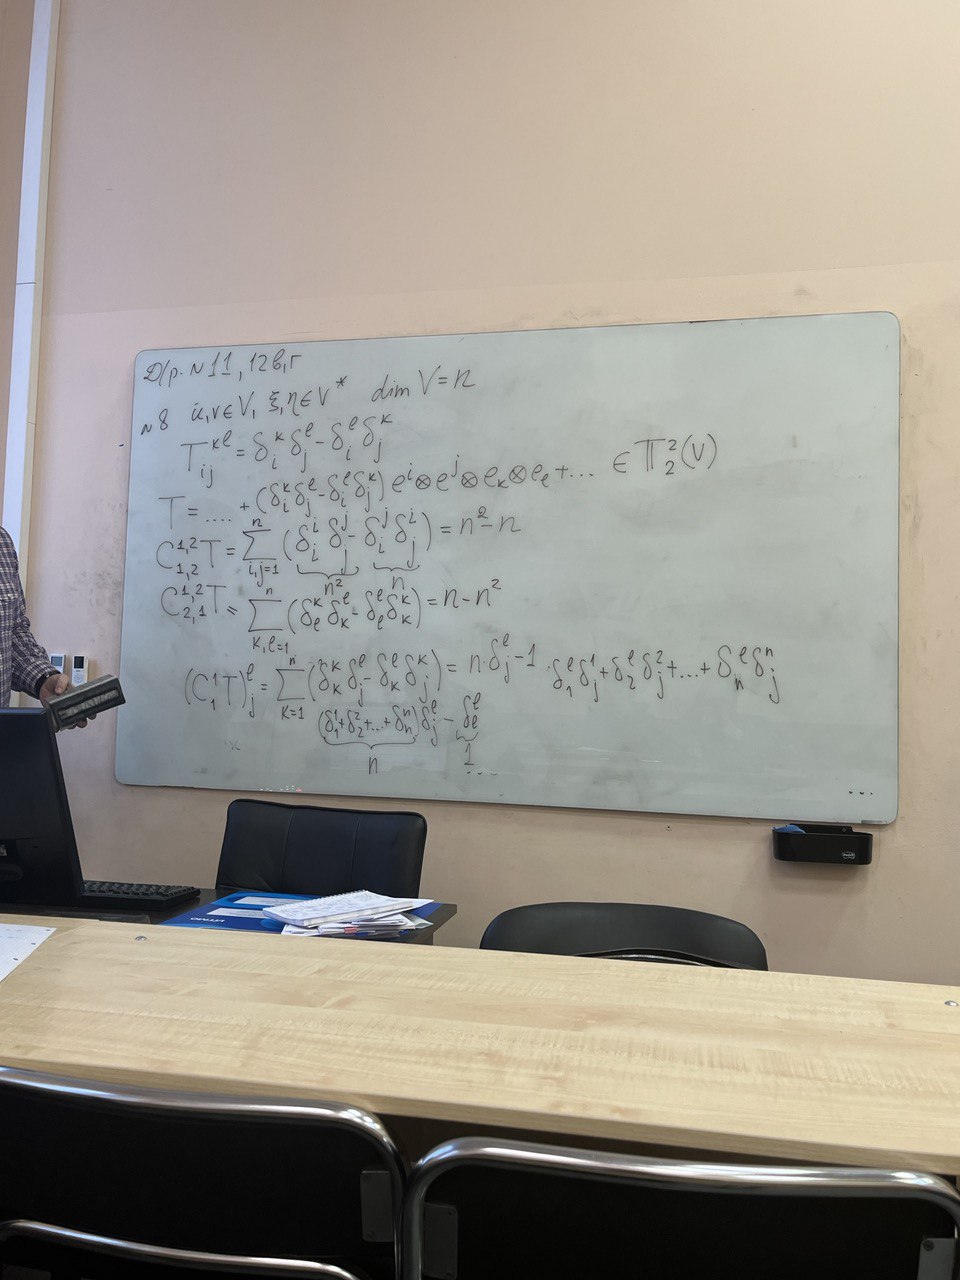 Д/р. №11, 12в,г
№8 u,v∈V, ξ,η∈V* dim V=n
T_{ij}^{kl} = δ_i^k δ_j^l - δ_i^l δ_j^k
T = .... + (δ_i^k δ_j^l - δ_i^l δ_j^k) e^i⊗e^j⊗e_k⊗e_l + ... ∈ 𝕋_2^2(V)
C_{1,2}^{1,2} T = Σ_{i,j=1}^{n} (δ_i^i δ_j^j - δ_i^j δ_j^i) = n^2 - n
n^2 n
C_{2,1}^{1,2} T = Σ_{k,l=1}^{n} (δ_l^k δ_k^l - δ_l^l δ_k^k) = n - n^2
(C_1^1 T)_j^l = Σ_{k=1}^{n} (δ_k^k δ_j^l - δ_k^l δ_j^k) = n·δ_j^l - 1 · δ_1^l δ_j^1 + δ_2^l δ_j^2 + ... + δ_n^l δ_j^n
(δ_1^1 + δ_2^2 + ... + δ_n^n) δ_j^l - δ_l^l
n 1